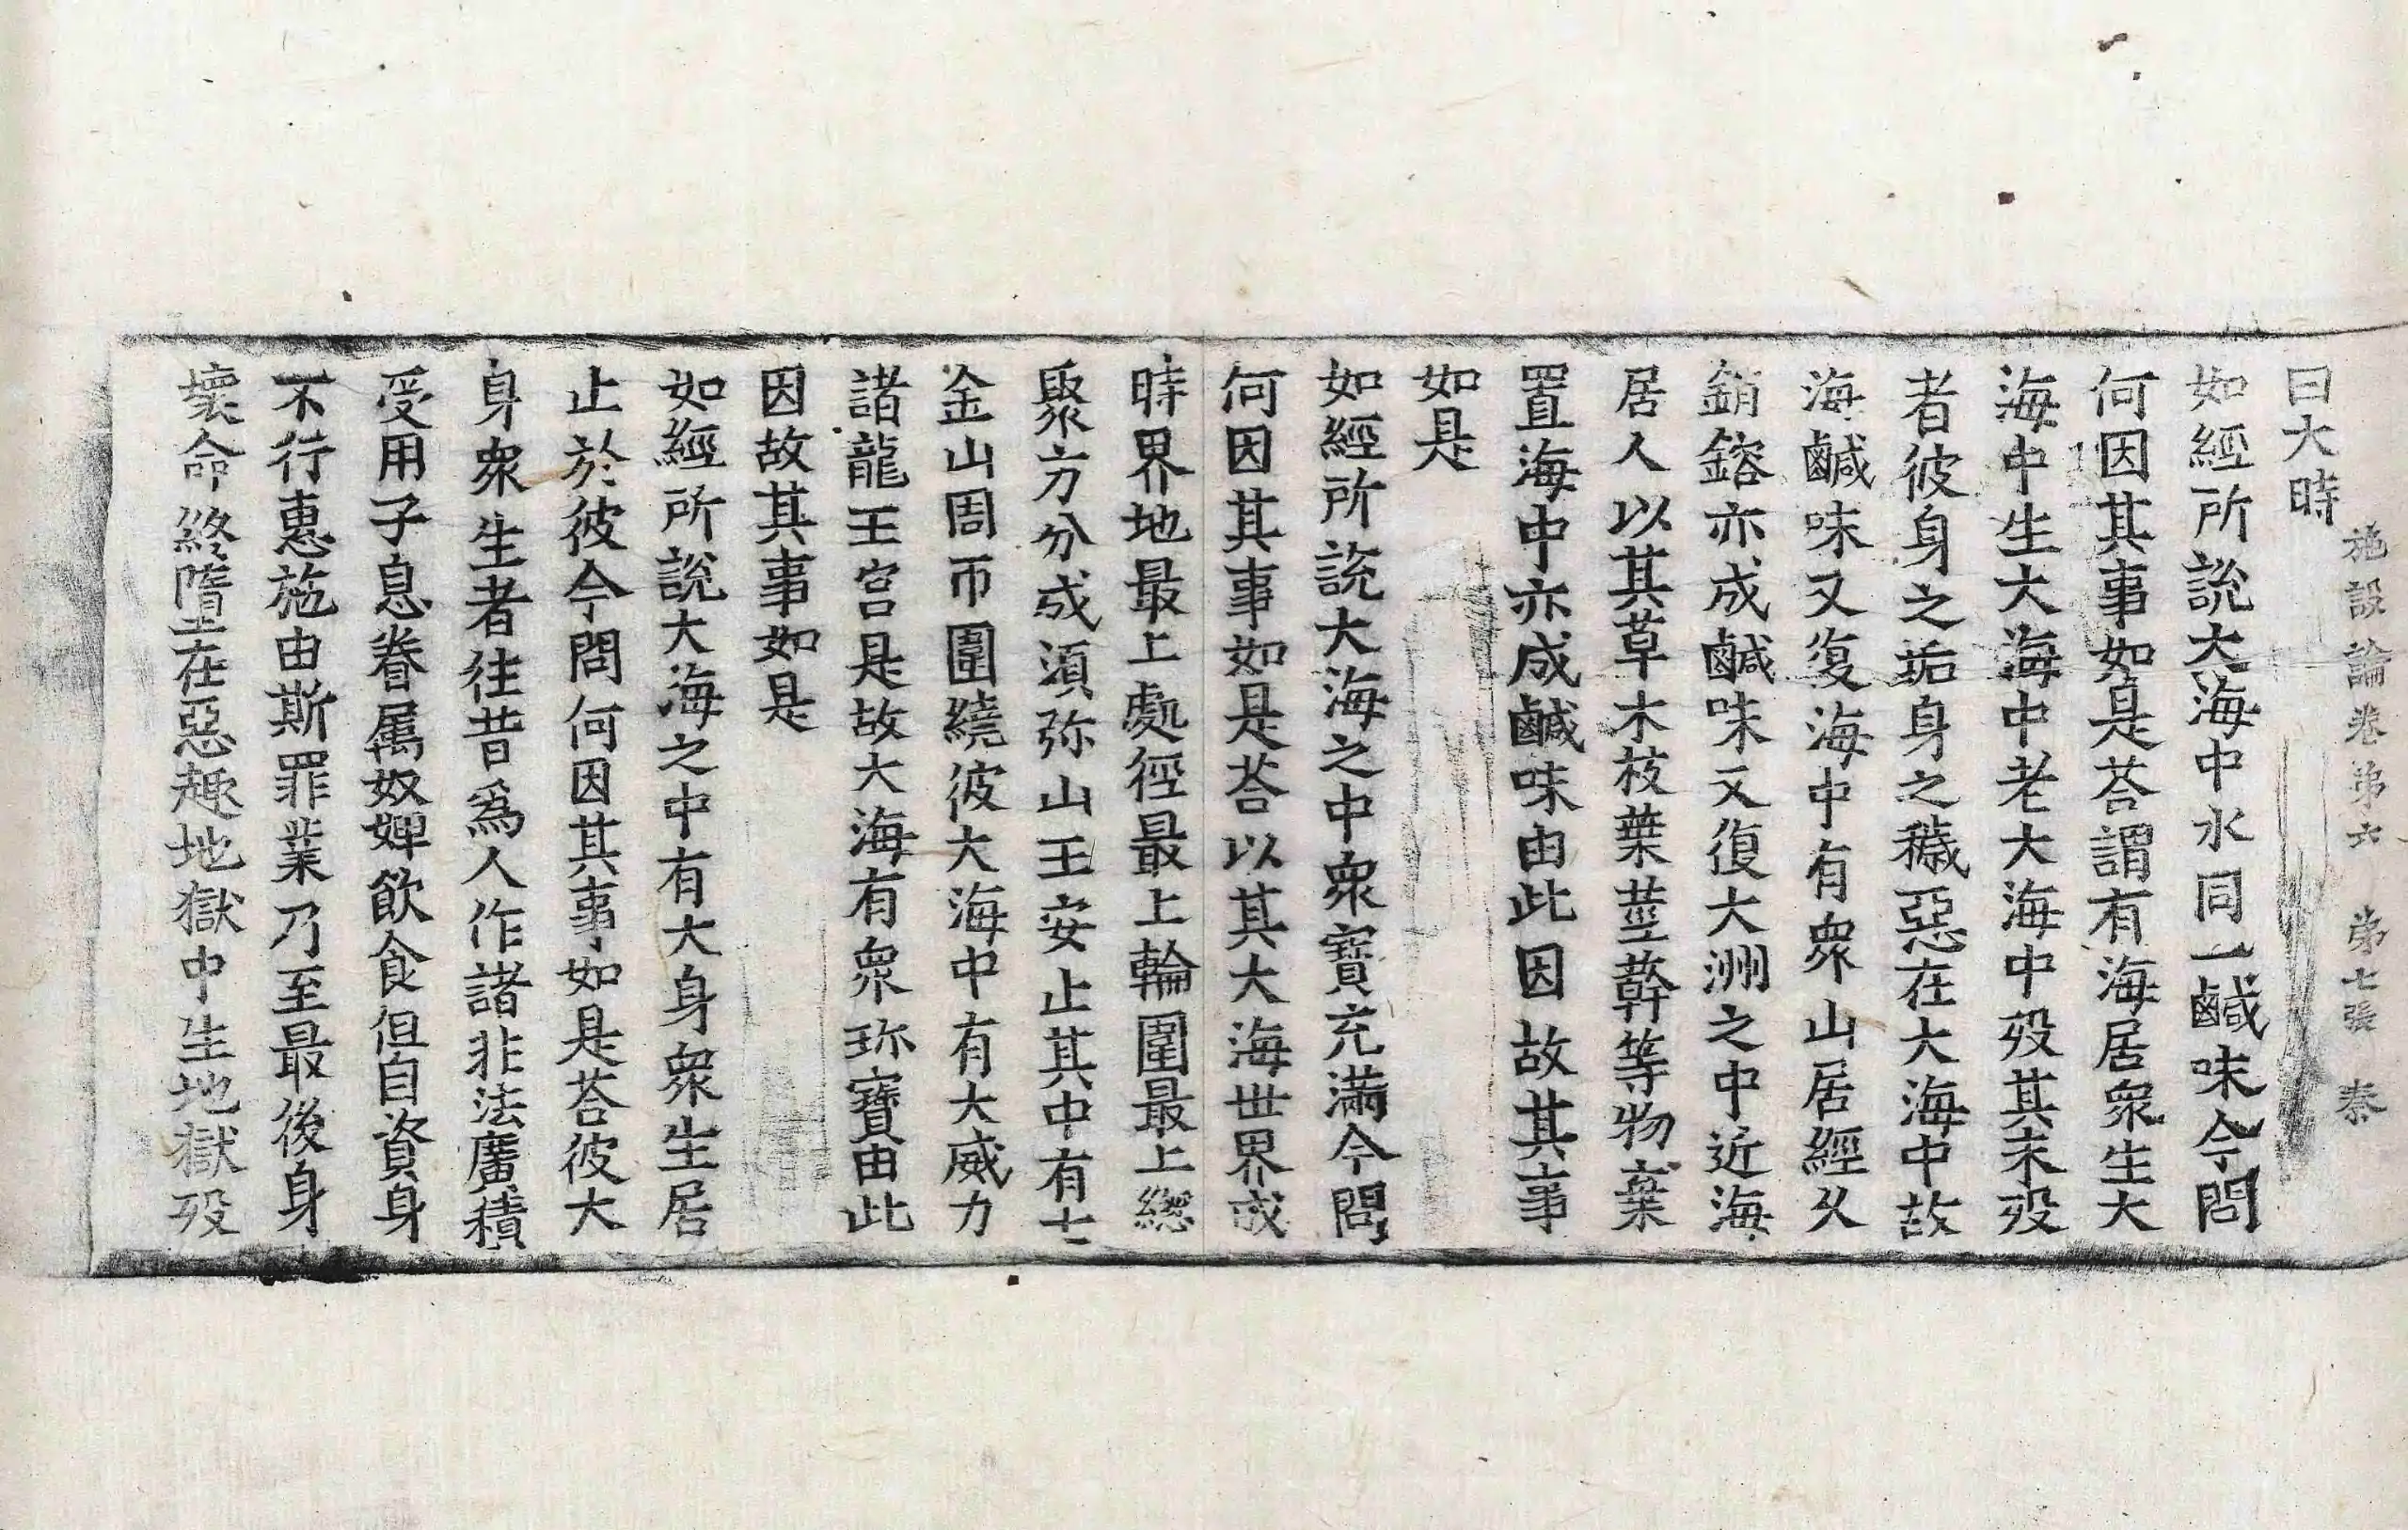 施設論卷第六 第七張 秦
曰大時
如經所說大海中水同一鹹味今問
何因其事如是荅謂有海居衆生大
海中生大海中老大海中歿其未歿
者彼身之垢身之穢惡在大海中故
海鹹味又復海中有衆山居經久
銷鎔亦成鹹味又復大洲之中近海
居人以其草木枝葉莖幹等物棄
置海中亦成鹹味由此因故其事
如是
如經所說大海之中衆寶充滿今問
何因其事如是荅以其大海世界成
時界地最上處徑最上輪圍最上緫
聚方分成須弥山王安止其中有七
金山周帀圍繞彼大海中有大威力
諸龍王宮是故大海有衆珎寶由此
因故其事如是
如經所說大海之中有大身衆生居
止於彼今問何因其事如是荅彼大
身衆生者往昔爲人作諸非法廣積
受用子息眷属奴婢飲食但自資身
不行惠施由斯罪業乃至最後身
壞命終墮在惡趣地獄中生地獄歿